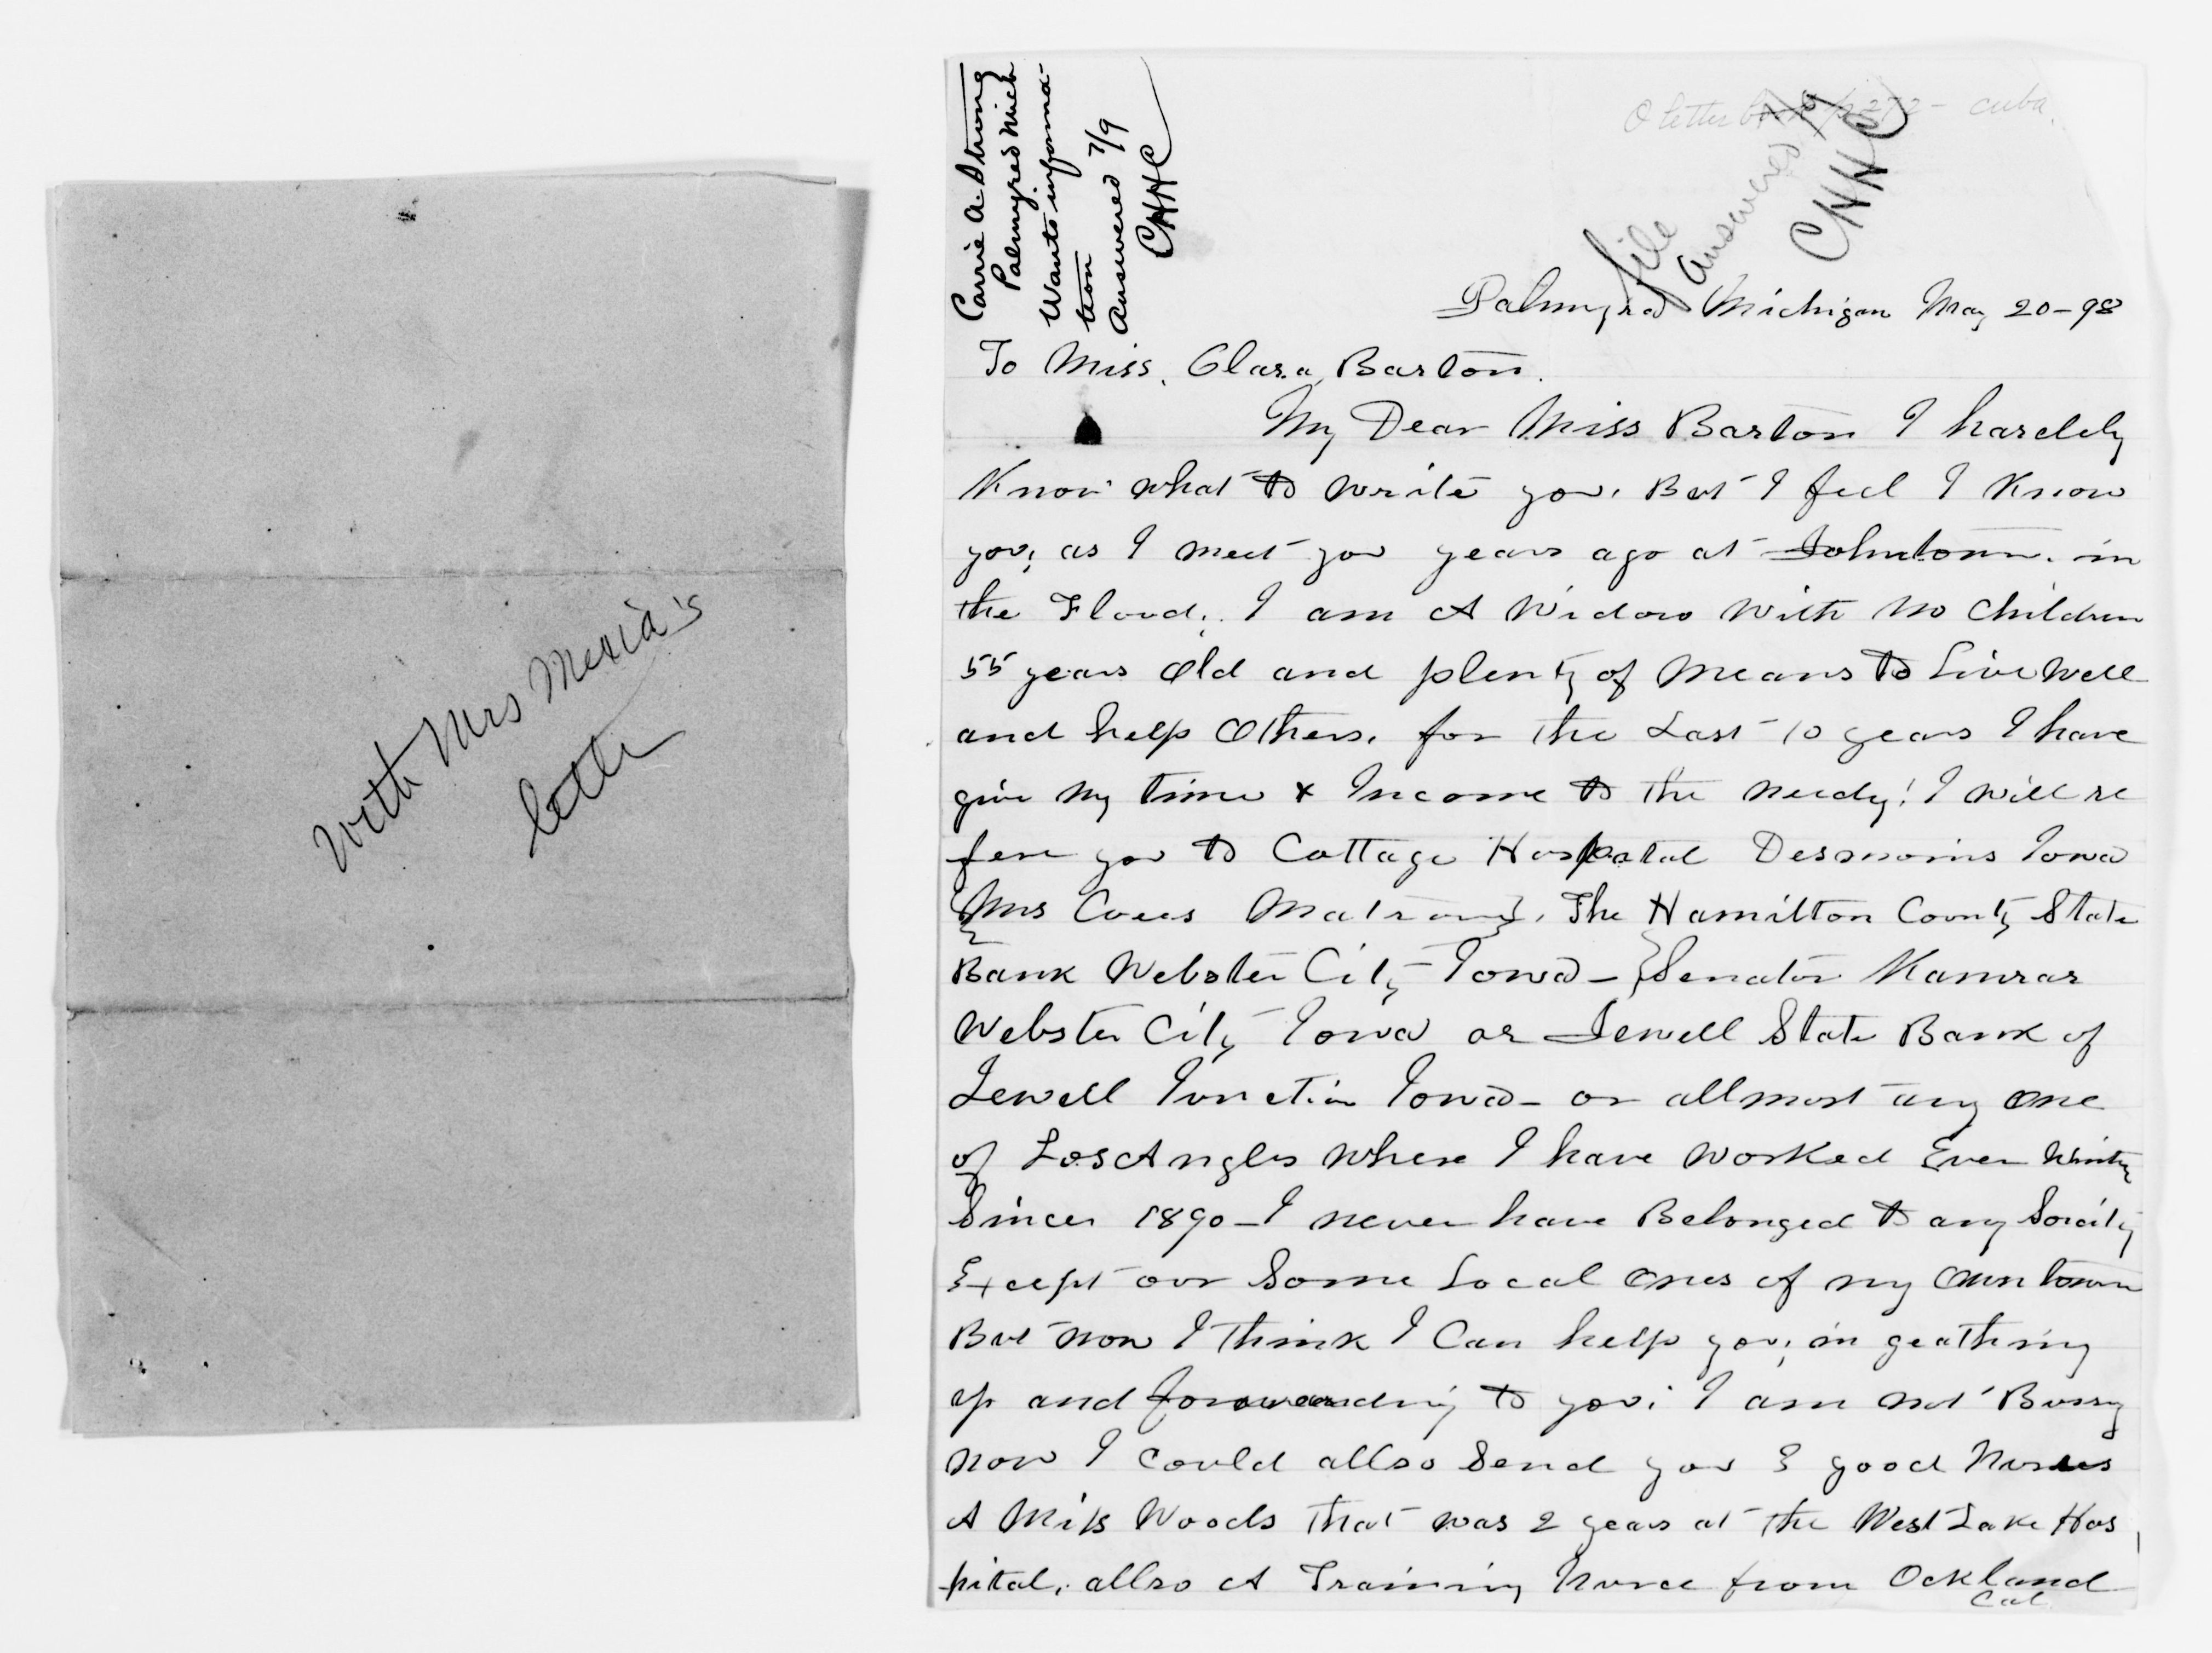 with Mrs Mexia's
letter
Carrie A. Strong
Palmyred Mich
Wants informa-
tion
Answered 7/9
CHHC
O letter p 272 - cuba.
file
Answered 7/9
CHHC
Palmyra Michigan May 20-98
To Miss. Clara Barton.
My Dear Miss Barton I hardely
Know what to write you. But I feel I Know
you; as I meet you years ago at Johntown. in
the Flood; I am A Widow with no Children
55 years old and plenty of means to Live well
and help Others. for the Last 10 years I have
give my time & Income to the needy! I will re
fere you to Cottage Hospatal Desmoins Iowa
{Mrs Matron}. The Hamilton County State
Bank Webster City Iowa - {Senator Kamrar
Webster City Iowa or Jewell State Bank of
Jewell Junction Iowa - or allmost any one
of Los Angles where I have worked Ever Winter
Since 1890 - I never have Belonged to any Socity
Except our Some Local ones of my own town
But now I think I Can help you; in geathring
up and forowarding to you; I am not Bussy
now I could allso Send you 3 good Nurses
A Miss Woods that was 2 years at the West Lake Hos
pital. allso A Training Nurce from Ockland
Cal